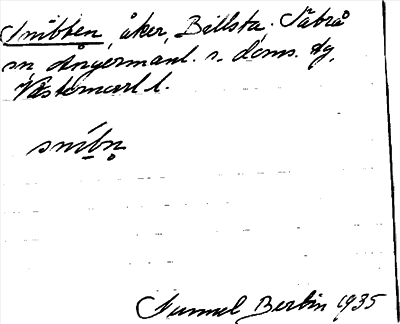 Snibben, åker, Billsta. Säbrå
sn, Ångermanl. s. doms. dg,
Västernorrl. l.
snibn̥
Gunnel Berlin 1935